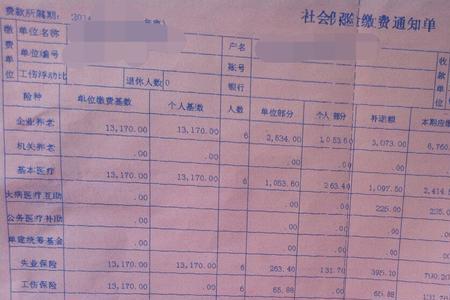 社会保险缴费通知单
费款所属期: 2014 年度
缴费单位 单位名称 户名 收款单位
单位编号 账号
工伤浮动比 退休人数 0 银行
险种 单位缴费基数 个人基数 人数 单位部分 个人部分 补退额 本期应缴
企业养老 13,170.00 13,170.00 6 2,634.00 1,053.60 3,073.00 6,760
机关养老 .00 .00 .00 .00 .00
基本医疗 13,170.00 13,170.00 6 1,053.60 263.40 1,097.50 2,414.
大病医疗互助 .00 .00 .00 225.00 225.0
公务医疗补助 .00 .00 .00 .00
单建统筹基金 .00 .00 .00 .00
失业保险 13,170.00 13,170.00 6 263.40 131.70 395.10 790.20
工伤保险 13,170.00 .00 6 65.88 .00 65.88 131.76